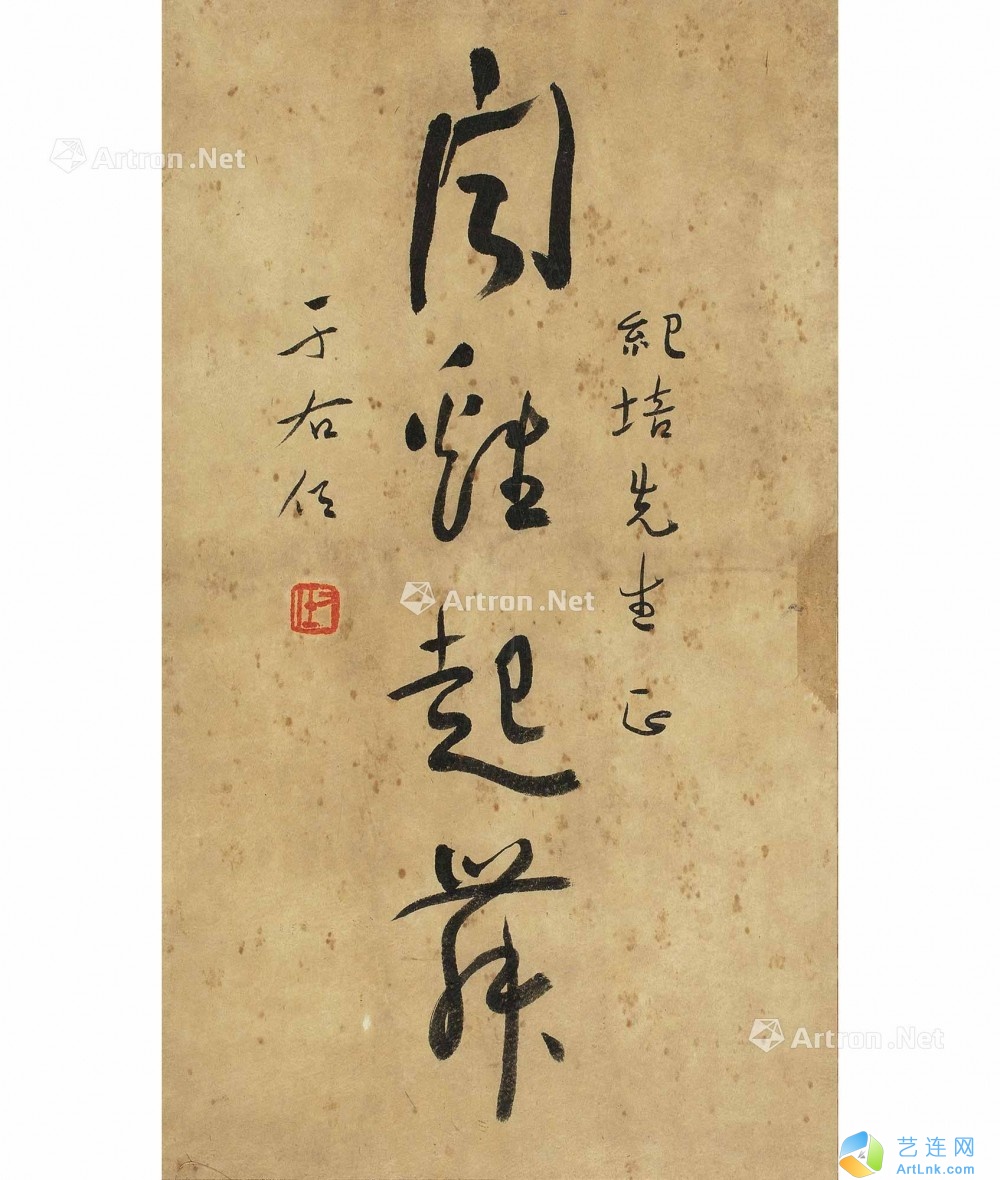 紀培先生正
闻雞起舞
于右任
右任
Artron.Net
Artron.Net
Artron.Net
艺连网
ArtLnk.com